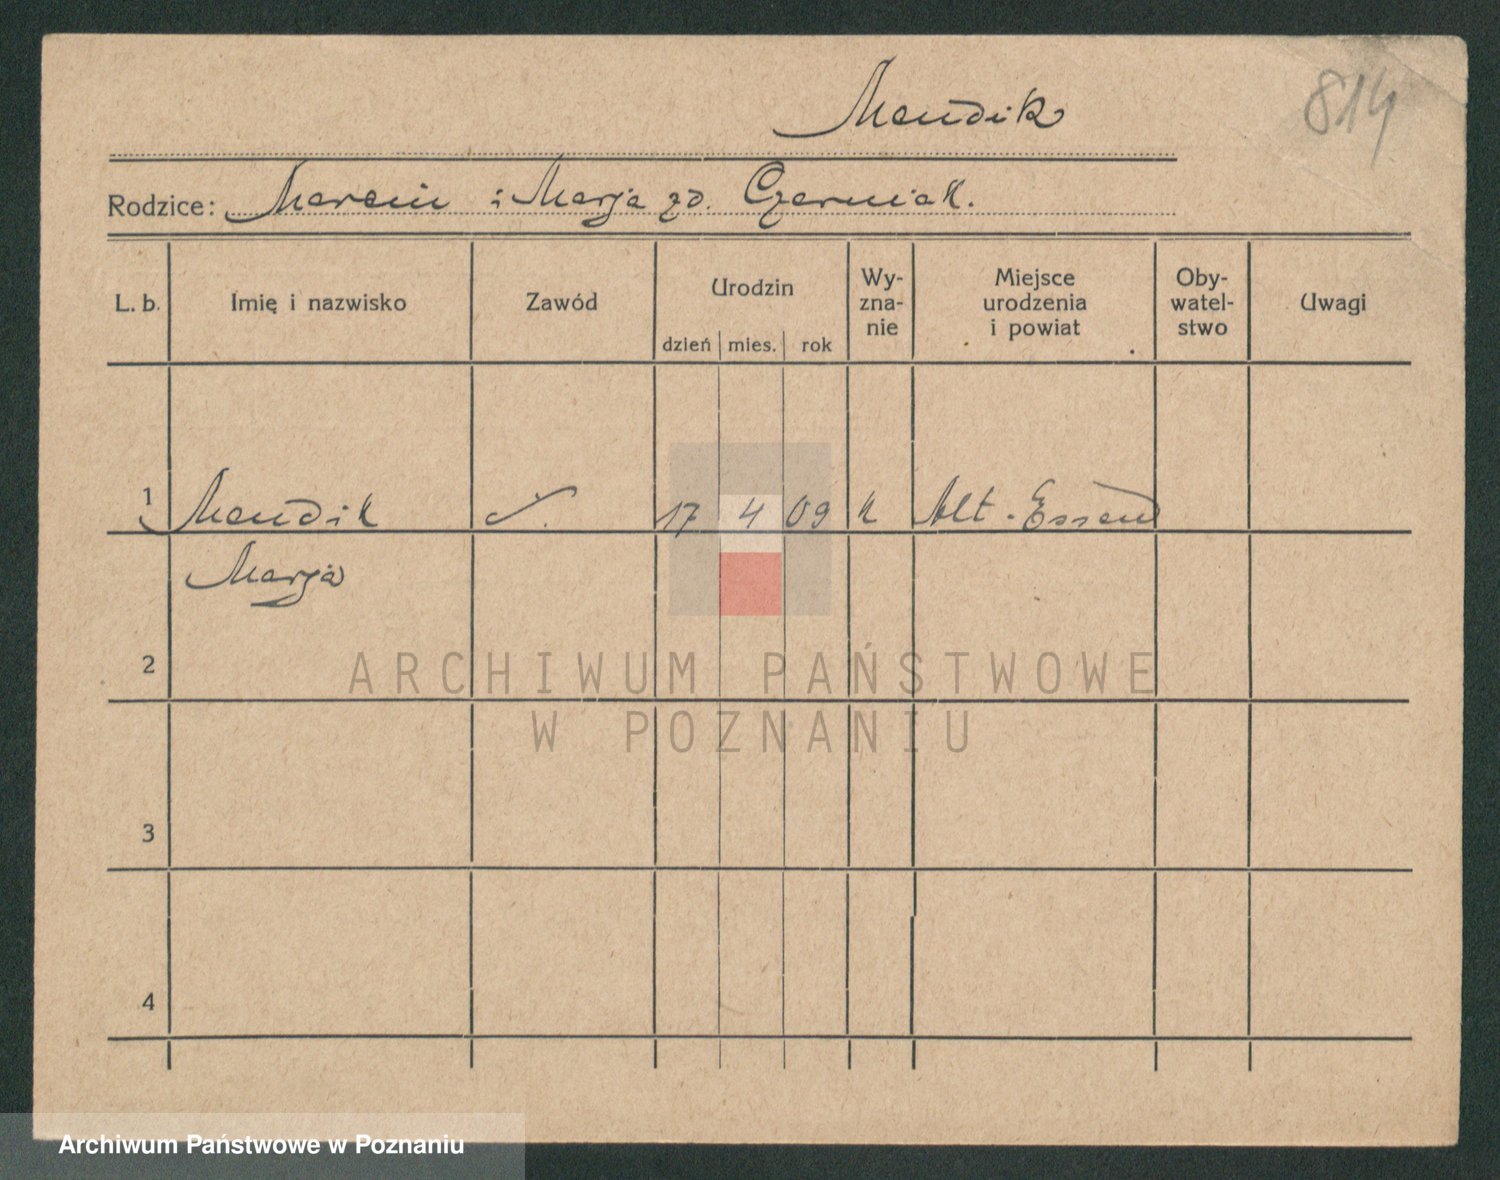 Mendik
814
Rodzice: Marcin i Marja zd. Czerniak.
L. b. Imię i nazwisko Zawód Urodzin dzień mies. rok Wy-zna-nie Miejsce urodzenia i powiat Oby-watel-stwo Uwagi
1 Mendik 17 4 09 k Alt-Essen
Marja
2
ARCHIWUM PAŃSTWOWE
W POZNANIU
3
4
Archiwum Państwowe w Poznaniu